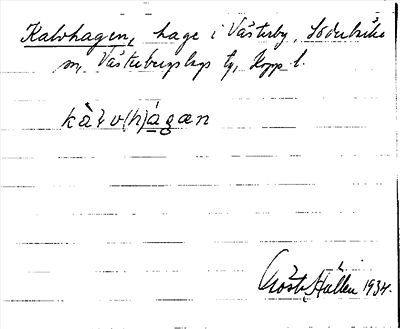 Kalvhagen, hage i Västerby, Söderbärke
sn, Västerbergslags tg, Kopp. l.
kàlv(h)ágæn
Gösta Hallén 1934.